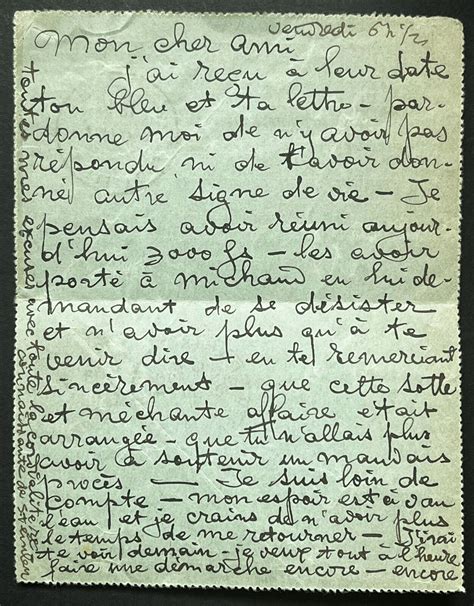 vendredi 6h 1/2
Mon cher ami
j'ai reçu à leur date
ton bleu et ta lettre - par-
donne moi de n'y avoir pas
répondu ni de t'avoir don-
né autre signe de vie - Je
pensais avoir réuni aujour-
d'hui 3000 fs - les avoir
porté à Michaud en lui de-
mandant de se désister
et n'avoir plus qu'à te
venir dire - en te remerciant
sincèrement - que cette sotte
et méchante affaire était
arrangée - que tu n'allais plus
avoir à soutenir un mauvais
procès — Je suis loin de
compte - mon espoir est à vau
l'eau et je crains de n'avoir plus
le temps de me retourner - J'irai
te voir demain - je veux tout à l'heure
faire une démarche encore - encore
toutes mes excuses avec toute la cordialité et
connaissante de